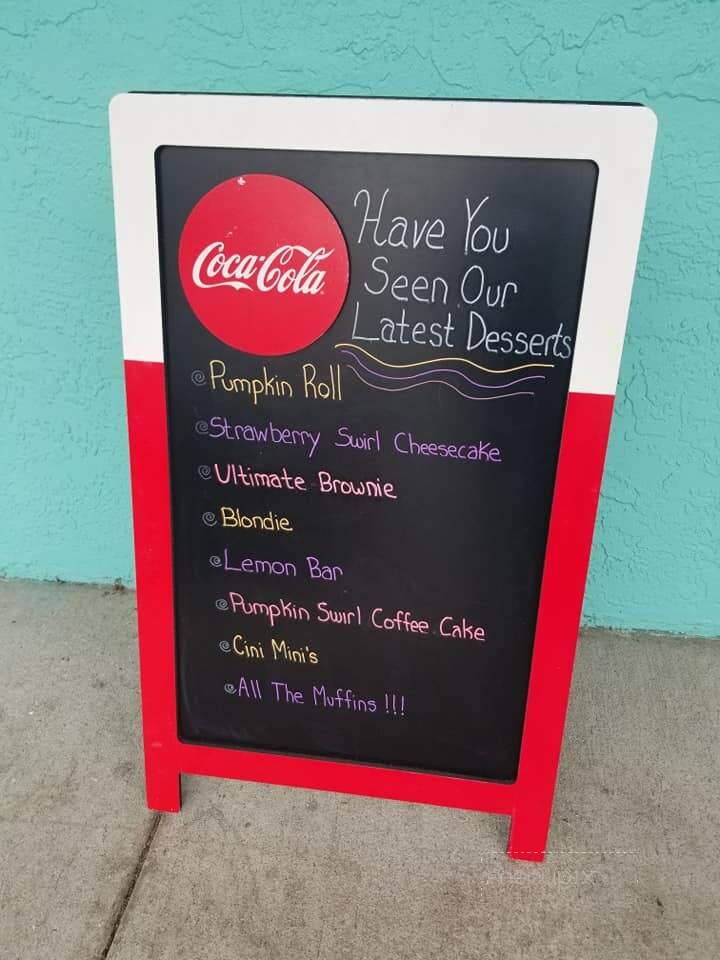 Coca-Cola
Have You
Seen Our
Latest Desserts
Pumpkin Roll
Strawberry Swirl Cheesecake
Ultimate Brownie
Blondie
Lemon Bar
Pumpkin Swirl Coffee Cake
Cini Mini's
All The Muffins !!!